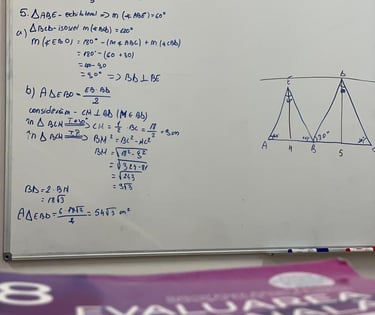 5. △ABE - echilateral ⇒ m(∢ABE)=60°
a) △BCD - isoscel m(∢
m(∢EBD) = 180° - (m(∢ABC) + m(∢CBD)
= 180° - (60 + 30)
= 90
= 90° ⇒ BD ⊥ BE
b) A△EBD = EB·BD / 2
consideram - CM ⊥ BD (M∈BD)
în △BCM T 30° ⇒ CM = 1/2 · BC = 18/2 = 9 cm
în △BCM T.P ⇒ BM² = BC² - MC²
BM = √18² - 9²
= √324 - 81
= √243
= 9√3
BD = 2 · BM
= 18√3
A△EBD = 6·18√3 / 2 = 54√3 m²
E D
A M B S C
30°
8
EVALUAREA